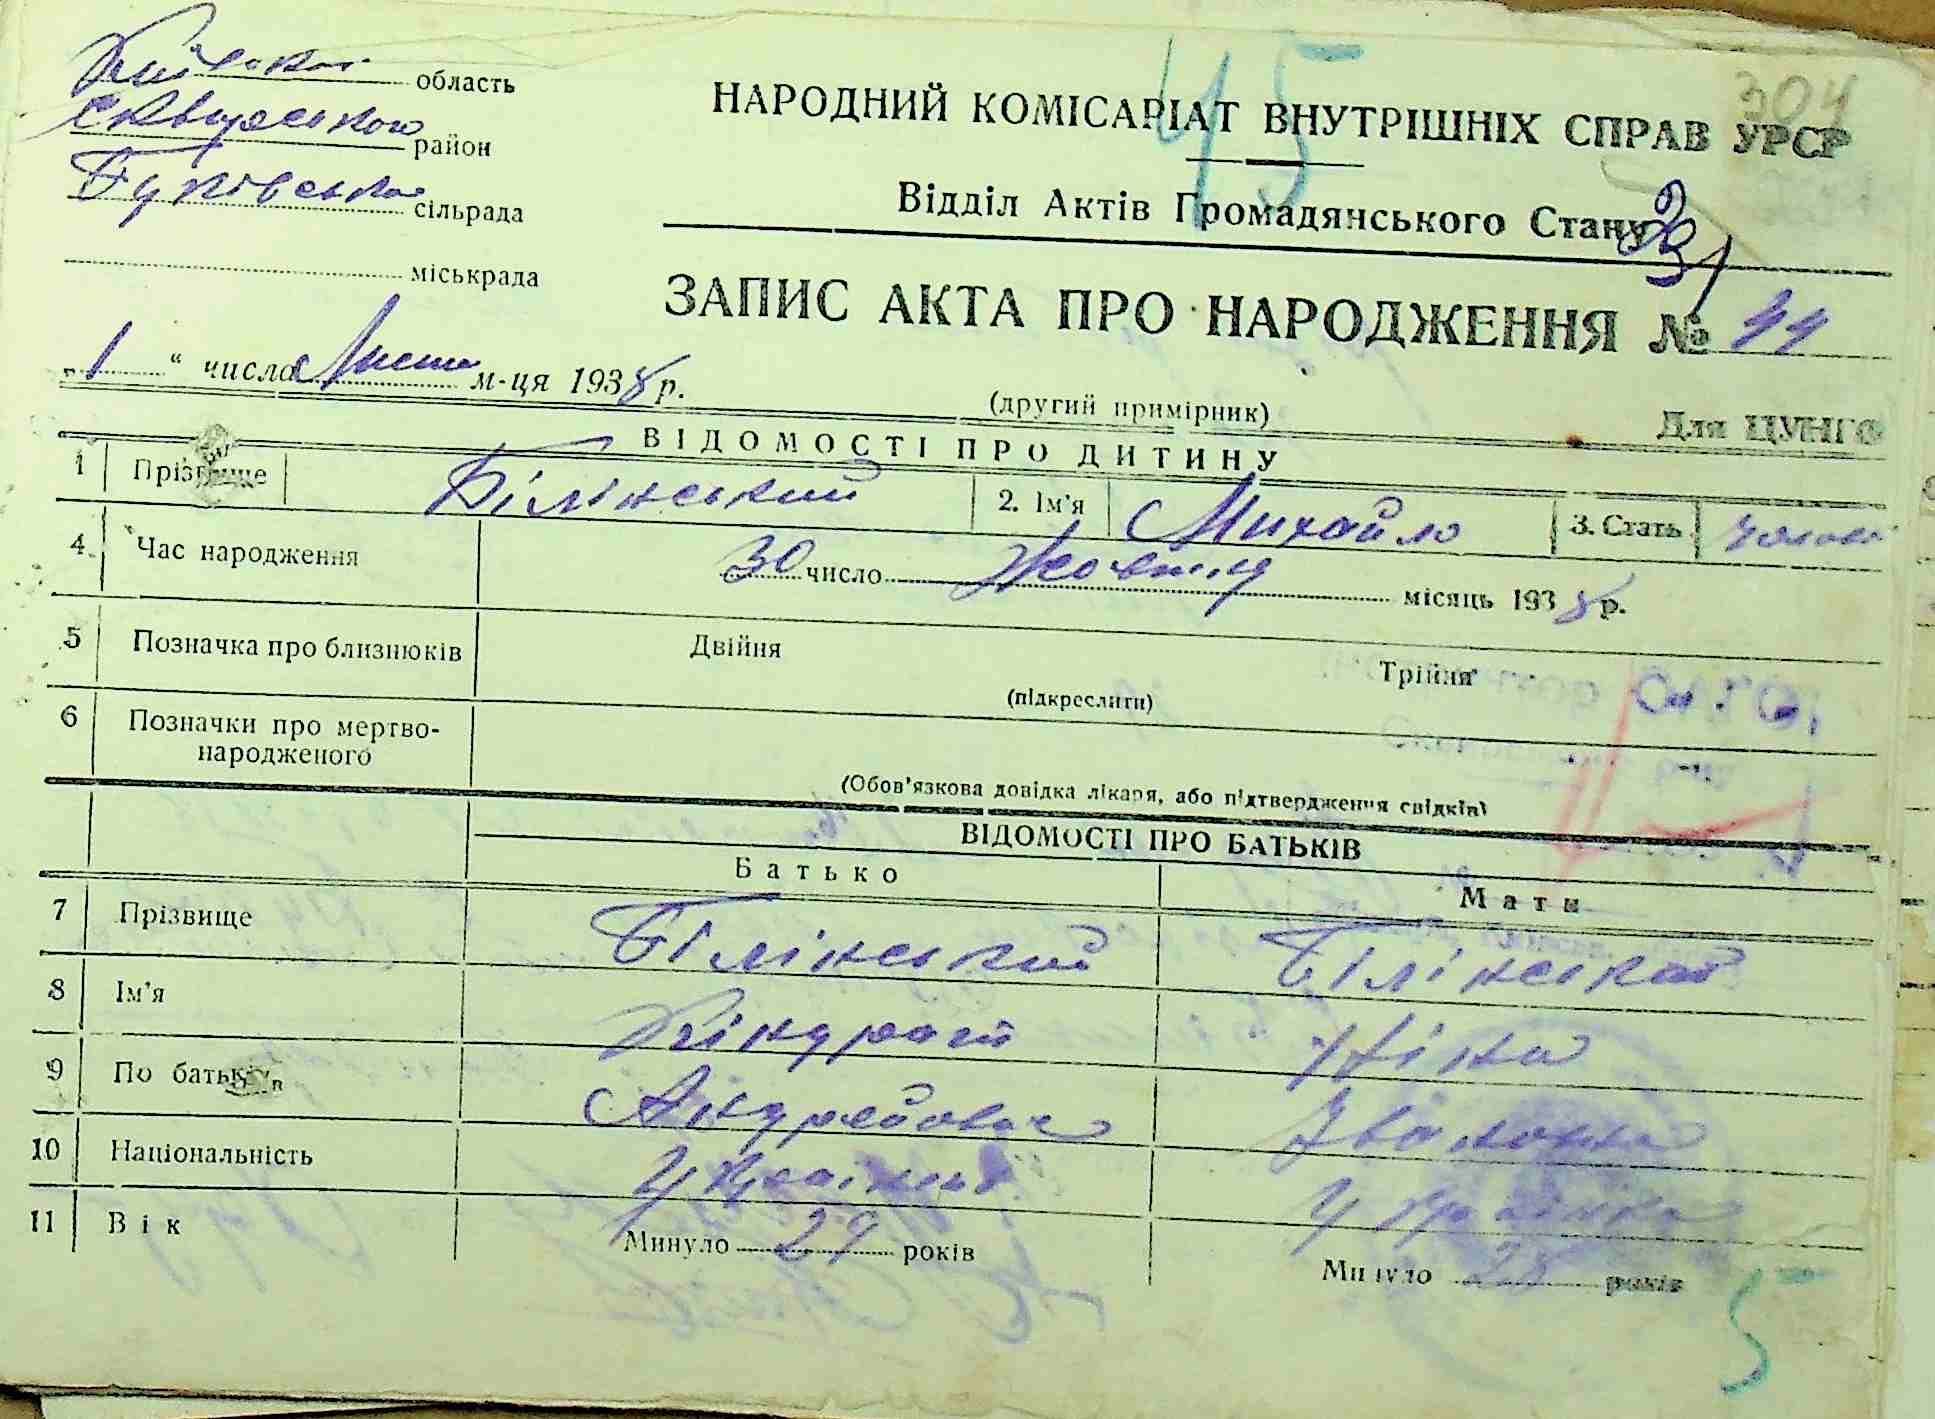 Київська область
Сквирського район
Буківська сільрада
міськрада
45
304
НАРОДНИЙ КОМІСАРІАТ ВНУТРІШНІХ СПРАВ УРСР
Відділ Актів Громадянського Стану
ЗАПИС АКТА ПРО НАРОДЖЕННЯ № 44
„1“ числа Листопа м-ця 1938 р.
(другий примірник)
Для ЦУНГО
ВІДОМОСТІ ПРО ДИТИНУ
1 Прізвище Білінський 2. Ім'я Михайло 3. Стать чолов
4. Час народження 30 число Жовтня місяць 1938 р.
5 Позначка про близнюків Двійня Трійня
(підкреслити)
6 Позначки про мертво-
народженого
(Обов'язкова довідка лікаря, або підтвердження свідків)
ВІДОМОСТІ ПРО БАТЬКІВ
Батько Мати
7 Прізвище Білінський Білінська
8 Ім'я Кіндрат Ніна
9 По батькові Андрейович Івановна
10 Національність Українець Українка
11 Вік Минуло 29 років Минуло 28 років
5